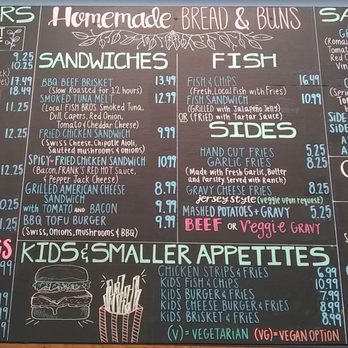 Homemade BREAD & BUNS
SANDWICHES
BBQ BEEF BRISKET 13.49
(Slow Roasted for 12 hours)
SMOKED TUNA MELT 12.99
(Local FISH BROS. Smoked Tuna,
Dill, Capers, Red Onion,
Tomato & Cheddar Cheese)
FRIED CHICKEN SANDWICH 9.99
(Swiss Cheese, Chipotle Aioli,
Sautéed mushrooms & onions)
SPICY FRIED CHICKEN SANDWICH 10.99
(Bacon, FRANK'S RED HOT Sauce,
& Pepper Jack Cheese)
GRILLED AMERICAN CHEESE SANDWICH 8.99
with TOMATO and BACON 9.99
BBQ TOFU BURGER 9.99
(Swiss, Onions, mushrooms & BBQ)
FISH
FISH & CHIPS 16.49
(Fresh, Local Fish with Fries)
FISH SANDWICH 10.99
(GRILLED with Jalapeño Jelly)
OR (FRIED with Tartar Sauce)
SIDES
HAND CUT FRIES 5.25
GARLIC FRIES 8.25
(Made with Fresh Garlic, Butter
and Parsley Served with Ranch)
GRAVY CHEESE FRIES 8.25
Jersey style (veggie upon request)
MASHED POTATOES + GRAVY 5.25
BEEF OR Veggie GRAVY
KIDS & SMALLER APPETITES
CHICKEN STRIPS & FRIES 6.99
KIDS FISH & CHIPS 10.99
KIDS BURGER & FRIES 7.99
KIDS CHEESE BURGER & FRIES 8.99
KIDS BRISKET & FRIES 8.99
(V) = VEGETARIAN (VG) = VEGAN OPTION
9.25
10.25
17.49
18.49
12.25
12.25
11.25